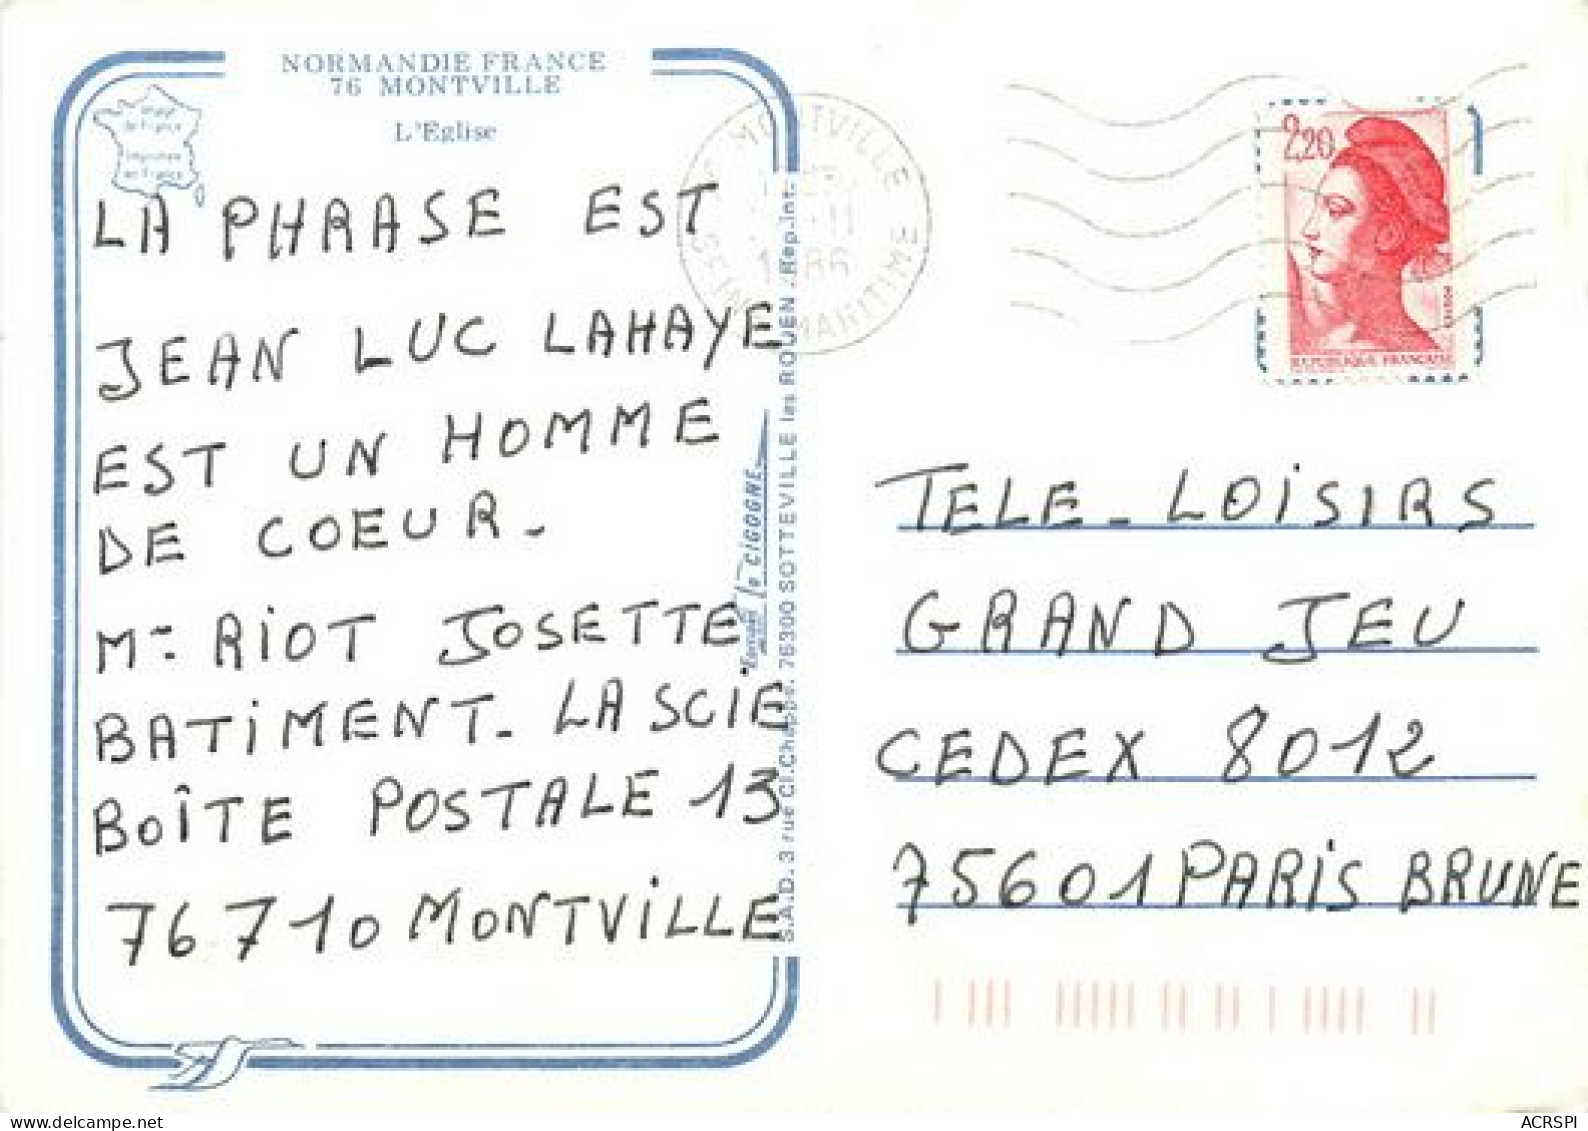 NORMANDIE FRANCE
76 MONTVILLE
L'Eglise
Image
de France
Imprimée
en France
LA PHRASE EST
JEAN LUC LAHAYE
EST UN HOMME
DE COEUR.
M- RIOT JOSETTE
BATIMENT. LA SCIE
BOÎTE POSTALE 13
76710 MONTVILLE
LA CIGOGNE
S.A.D. 3 rue Cl. Chappe. 76300 SOTTEVILLE les ROUEN / Rep. int.
MONTVILLE
SEINE MARITIME
2,20
REPUBLIQUE FRANÇAISE
TELE-LOISIRS
GRAND JEU
CEDEX 8012
75601 PARIS BRUNE
ACRSPI